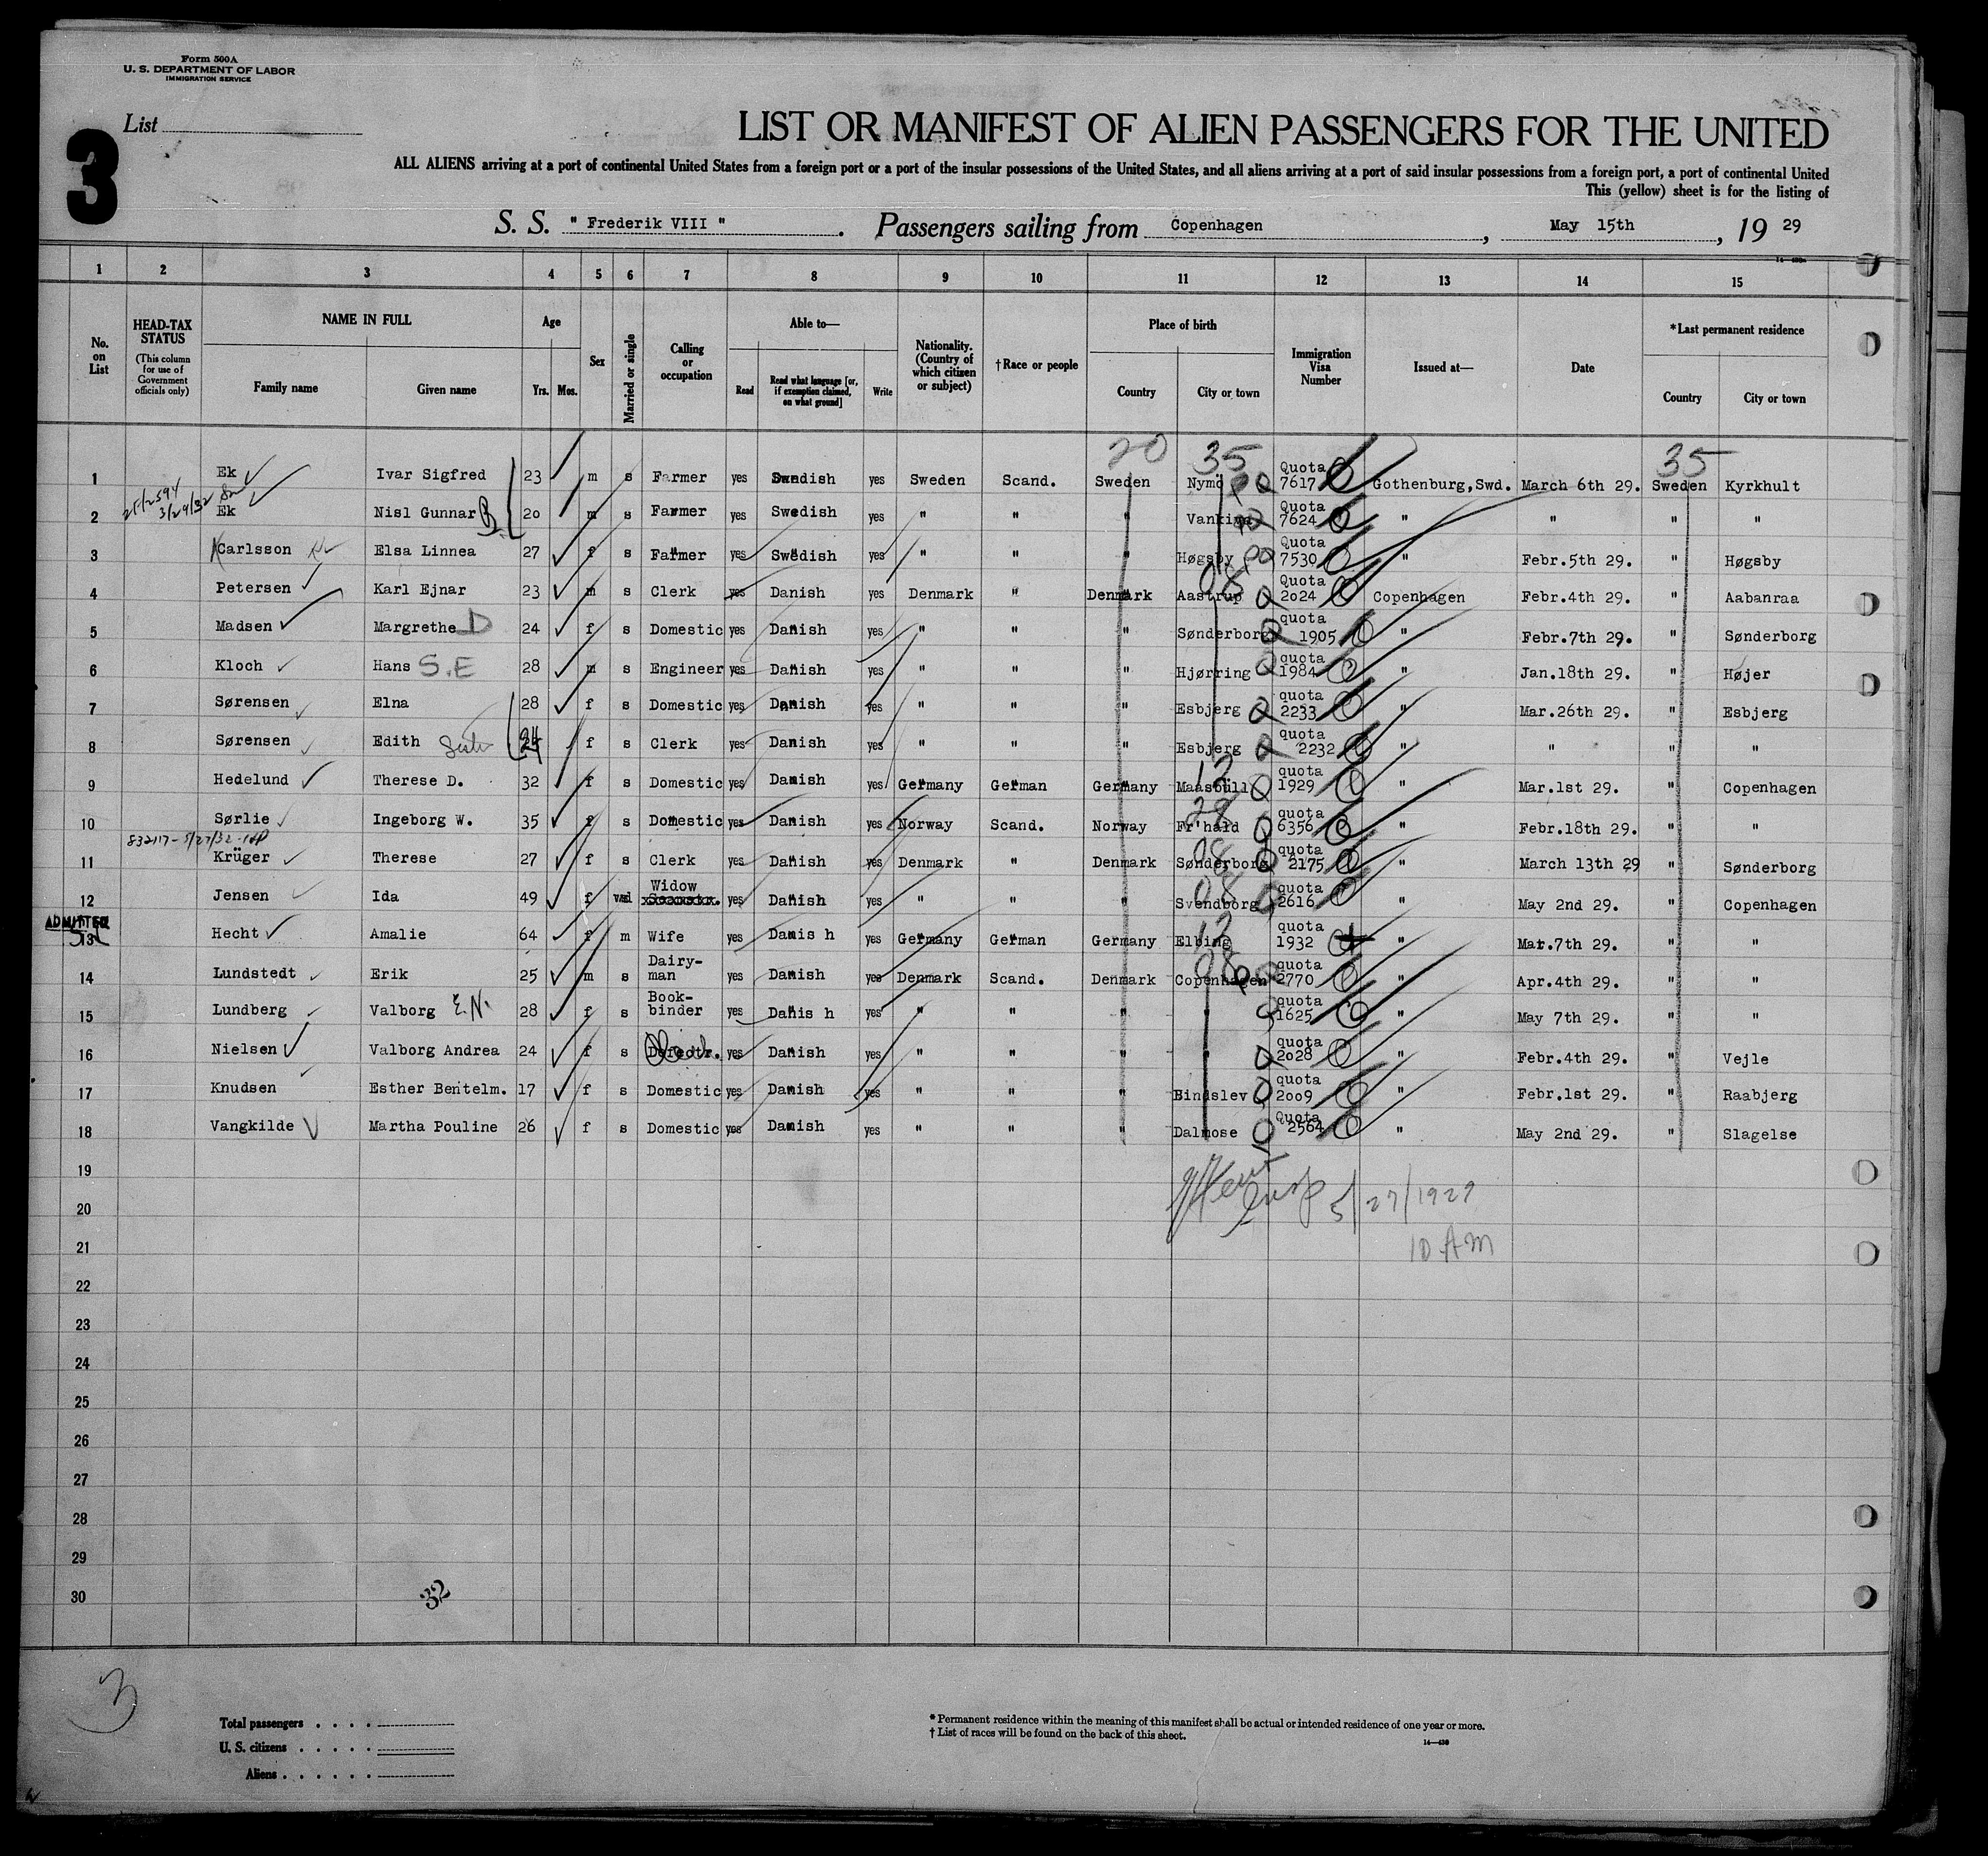 Form 500A
U. S. DEPARTMENT OF LABOR
IMMIGRATION SERVICE
List
3
LIST OR MANIFEST OF ALIEN PASSENGERS FOR THE UNITED
ALL ALIENS arriving at a port of continental United States from a foreign port or a port of the insular possessions of the United States, and all aliens arriving at a port of said insular possessions from a foreign port, a port of continental United
This (yellow) sheet is for the listing of
S. S. " Frederik VIII ". Passengers sailing from Copenhagen, May 15th, 19 29
1 2 3 4 5 6 7 8 9 10 11 12 13 14 15
No. on List
HEAD-TAX STATUS (This column for use of Government officials only)
NAME IN FULL Family name Given name
Age Yrs. Mos.
Sex
Married or single
Calling or occupation
Able to— Read Read what language [or, if exemption claimed, on what ground] Write
Nationality. (Country of which citizen or subject)
†Race or people
Place of birth Country City or town
Immigration Visa Number
Issued at—
Date
*Last permanent residence Country City or town
20 35 35
1 Ek Ivar Sigfred 23 m s Farmer yes Swedish yes Sweden Scand. Sweden Nymö Quota 7617 Gothenburg,Swd. March 6th 29. Sweden Kyrkhult
3/24/32
2 Ek Nisl Gunnar 20 m s Farmer yes Swedish yes " " " Quota 7624 " " " "
3 Carlsson Elsa Linnea 27 f s Farmer yes Swedish yes " " " Høgsby Quota 7530 " Febr.5th 29. " Høgsby
4 Petersen Karl Ejnar 23 m s Clerk yes Danish yes Denmark " Denmark Aastrup Quota 2024 Copenhagen Febr.4th 29. " Aabanraa
5 Madsen Margrethe D 24 f s Domestic yes Danish yes " " " Sønderborg quota 1905 " Febr.7th 29. " Sønderborg
6 Kloch Hans S.E 28 m s Engineer yes Danish yes " " " Hjørring quota 1984 " Jan.18th 29. " Højer
7 Sørensen Elna 28 f s Domestic yes Danish yes " " " Esbjerg quota 2233 " Mar.26th 29. " Esbjerg
8 Sørensen Edith 24 f s Clerk yes Danish yes " " " Esbjerg quota 2232 " " " "
9 Hedelund Therese D. 32 f s Domestic yes Danish yes Germany German Germany Maasbüll quota 1929 " Mar.1st 29. " Copenhagen
10 Sørlie Ingeborg W. 35 f s Domestic yes Danish yes Norway Scand. Norway Fr'hald quota 6356 " Febr.18th 29. " "
832117-5/27/32
11 Krüger Therese 27 f s Clerk yes Danish yes Denmark " Denmark Sønderborg quota 2175 " March 13th 29 " Sønderborg
12 Jensen Ida 49 f wd Widow yes Danish yes " " " Svendborg quota 2616 " May 2nd 29. " Copenhagen
ADMITTED
13 Hecht Amalie 64 f m Wife yes Danis h yes Germany German Germany Elbing quota 1932 " Mar.7th 29. " "
14 Lundstedt Erik 25 m s Dairy-man yes Danish yes Denmark Scand. Denmark Copenhagen quota 2770 " Apr.4th 29. " "
15 Lundberg Valborg E.N. 28 f s Book-binder yes Danis h yes " " " " quota 1625 " May 7th 29. " "
16 Nielsen Valborg Andrea 24 f s yes Danish yes " " " " quota 2028 " Febr.4th 29. " Vejle
17 Knudsen Esther Bentelm. 17 f s Domestic yes Danish yes " " " Bindslev quota 2009 " Febr.1st 29. " Raabjerg
18 Vangkilde Martha Pouline 26 f s Domestic yes Danish yes " " " Dalmose Quota 2564 " May 2nd 29. " Slagelse
19
20 5/27/1929
21 10 AM
22
23
24
25
26
27
28
29
30
32
3
Total passengers
U. S. citizens
Aliens
* Permanent residence within the meaning of this manifest shall be actual or intended residence of one year or more.
† List of races will be found on the back of this sheet.
14—430